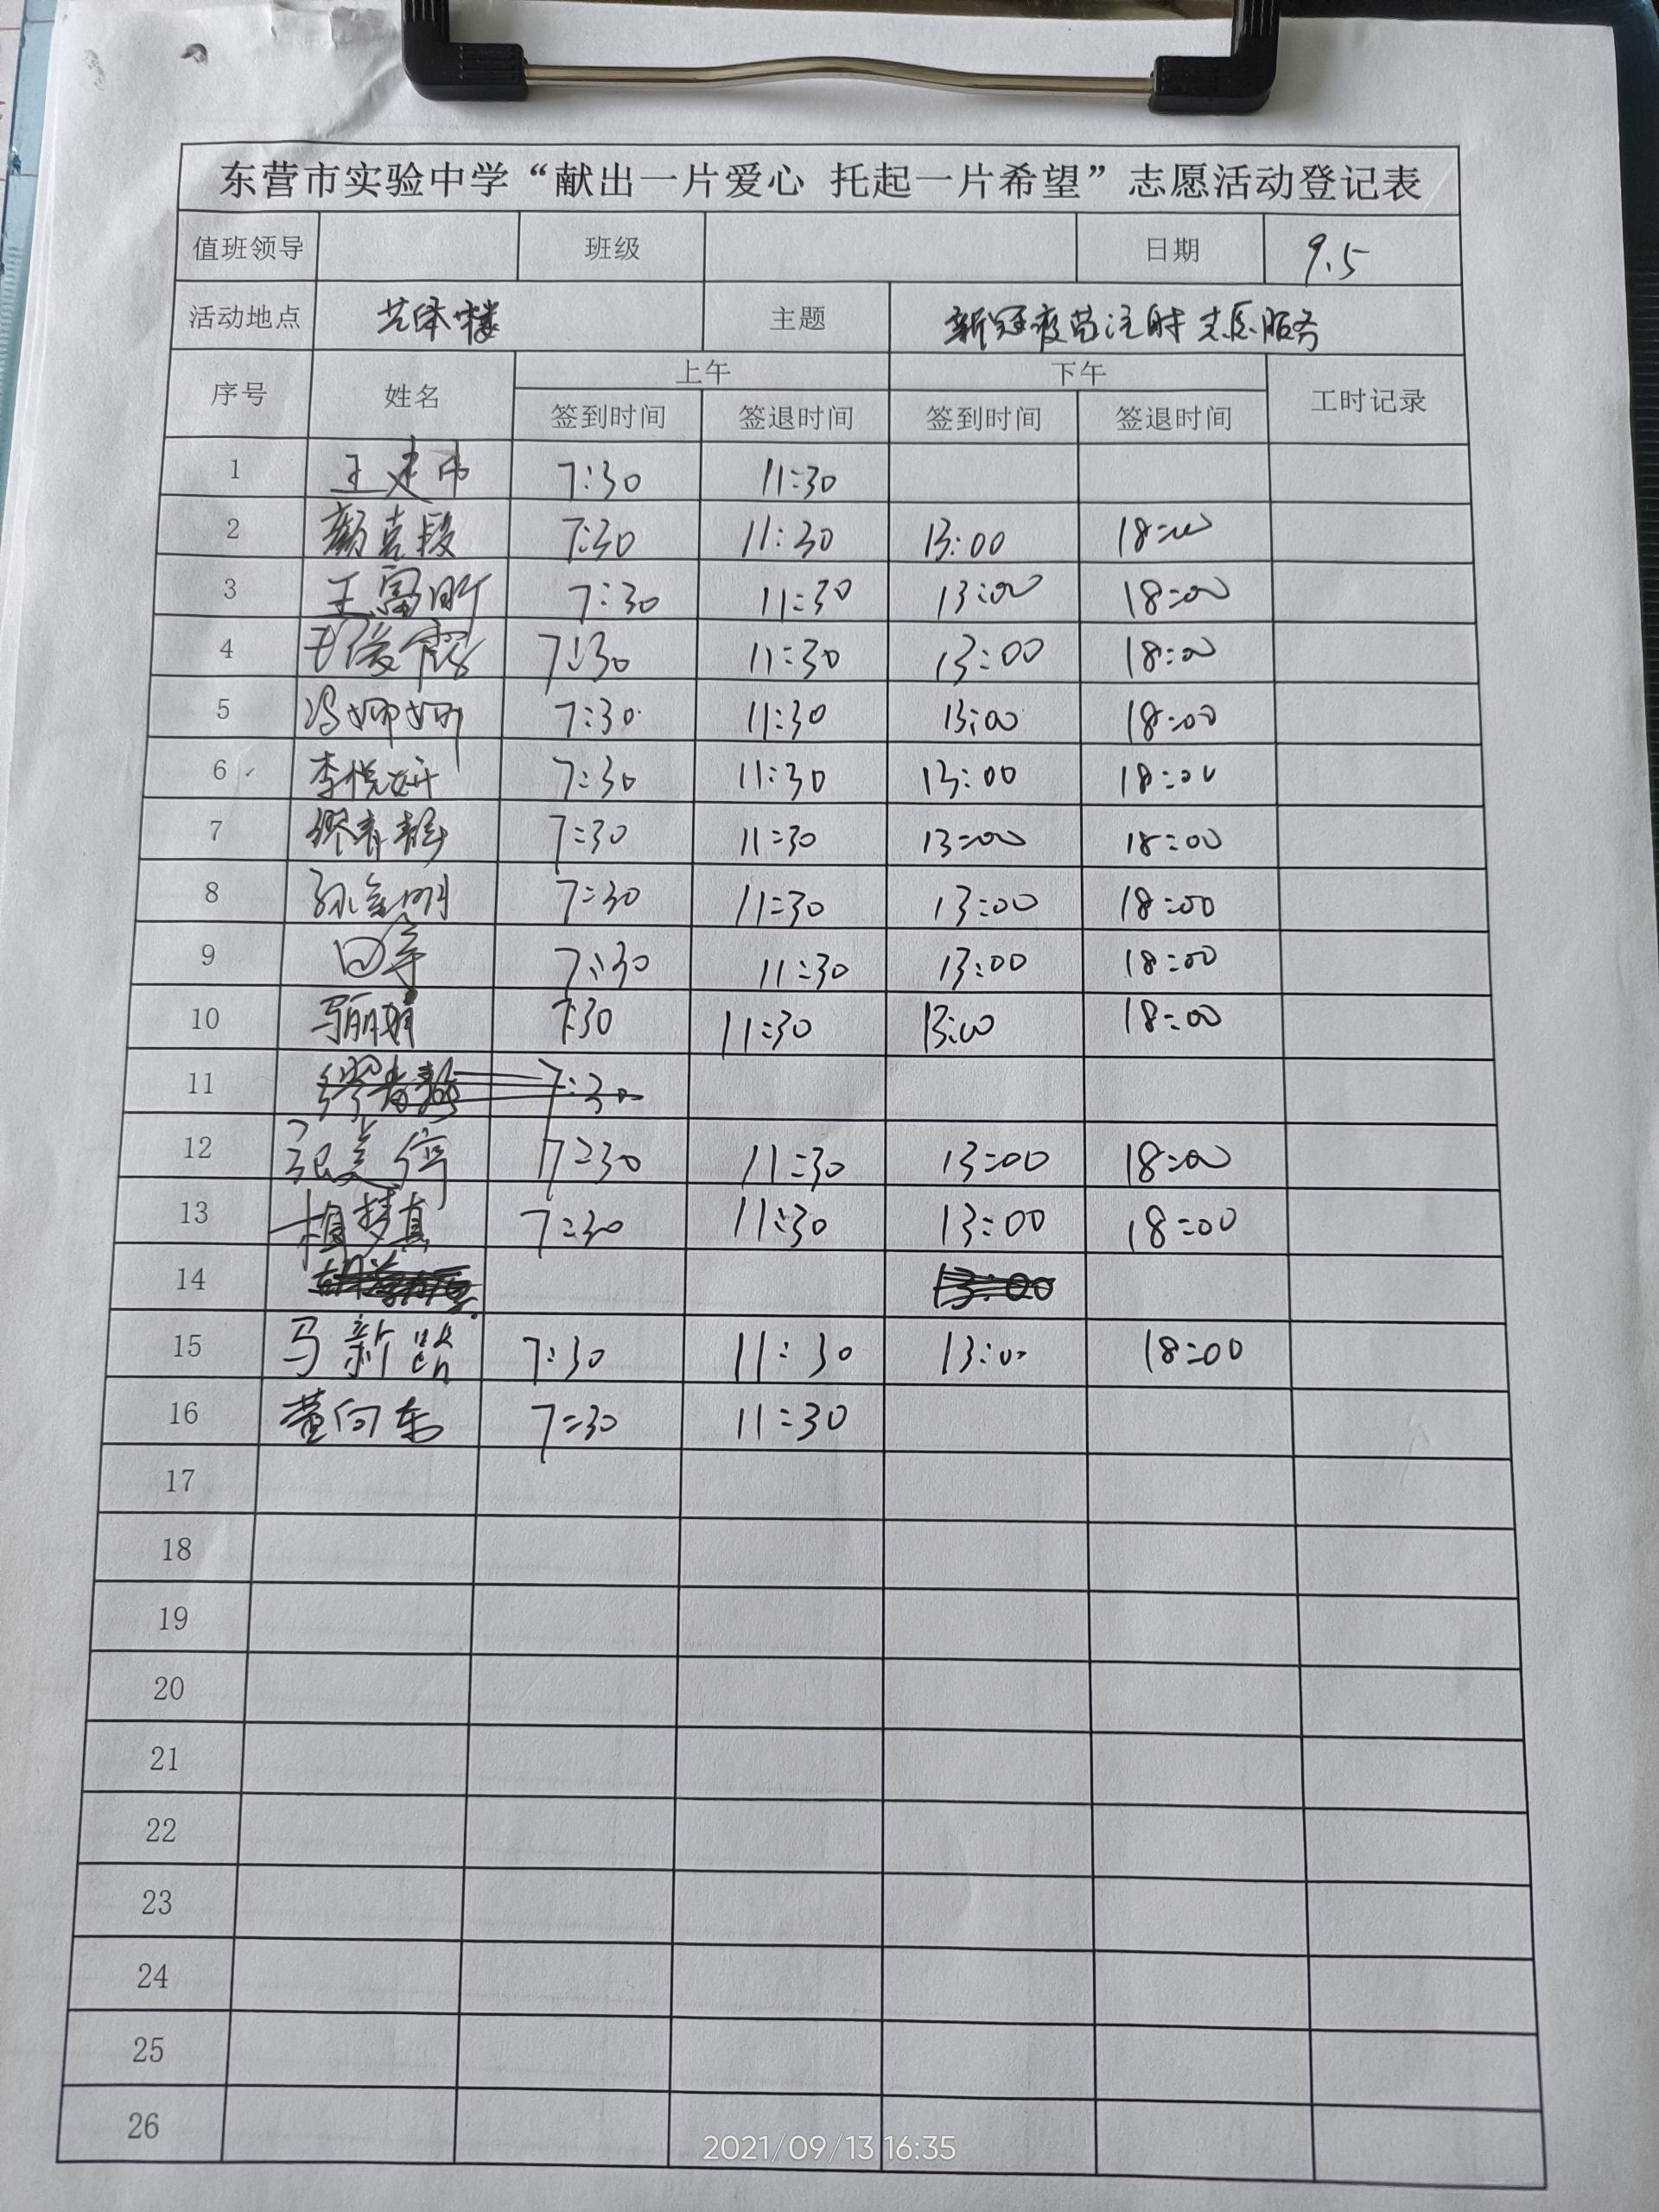 东营市实验中学“献出一片爱心 托起一片希望”志愿活动登记表
值班领导 班级 日期 9.5
活动地点 艺体楼 主题 新冠疫苗注射志愿服务
序号 姓名 上午 下午 工时记录
签到时间 签退时间 签到时间 签退时间
1 王建伟 7:30 11:30
2 7:30 11:30 13:00 18:00
3 王富昕 7:30 11:30 13:00 18:00
4 7:30 11:30 13:00 18:00
5 冯娜娜 7:30 11:30 13:00 18:00
6 李悦妍 7:30 11:30 13:00 18:00
7 缪青静 7:30 11:30 13:00 18:00
8 孙金明 7:30 11:30 13:00 18:00
9 7:30 11:30 13:00 18:00
10 马丽娟 7:30 11:30 13:00 18:00
11 7:30
12 张美倩 7:30 11:30 13:00 18:00
13 植梦真 7:30 11:30 13:00 18:00
14 13:00
15 马新路 7:30 11:30 13:00 18:00
16 董向东 7:30 11:30
17
18
19
20
21
22
23
24
25
26
2021/09/13 16:35